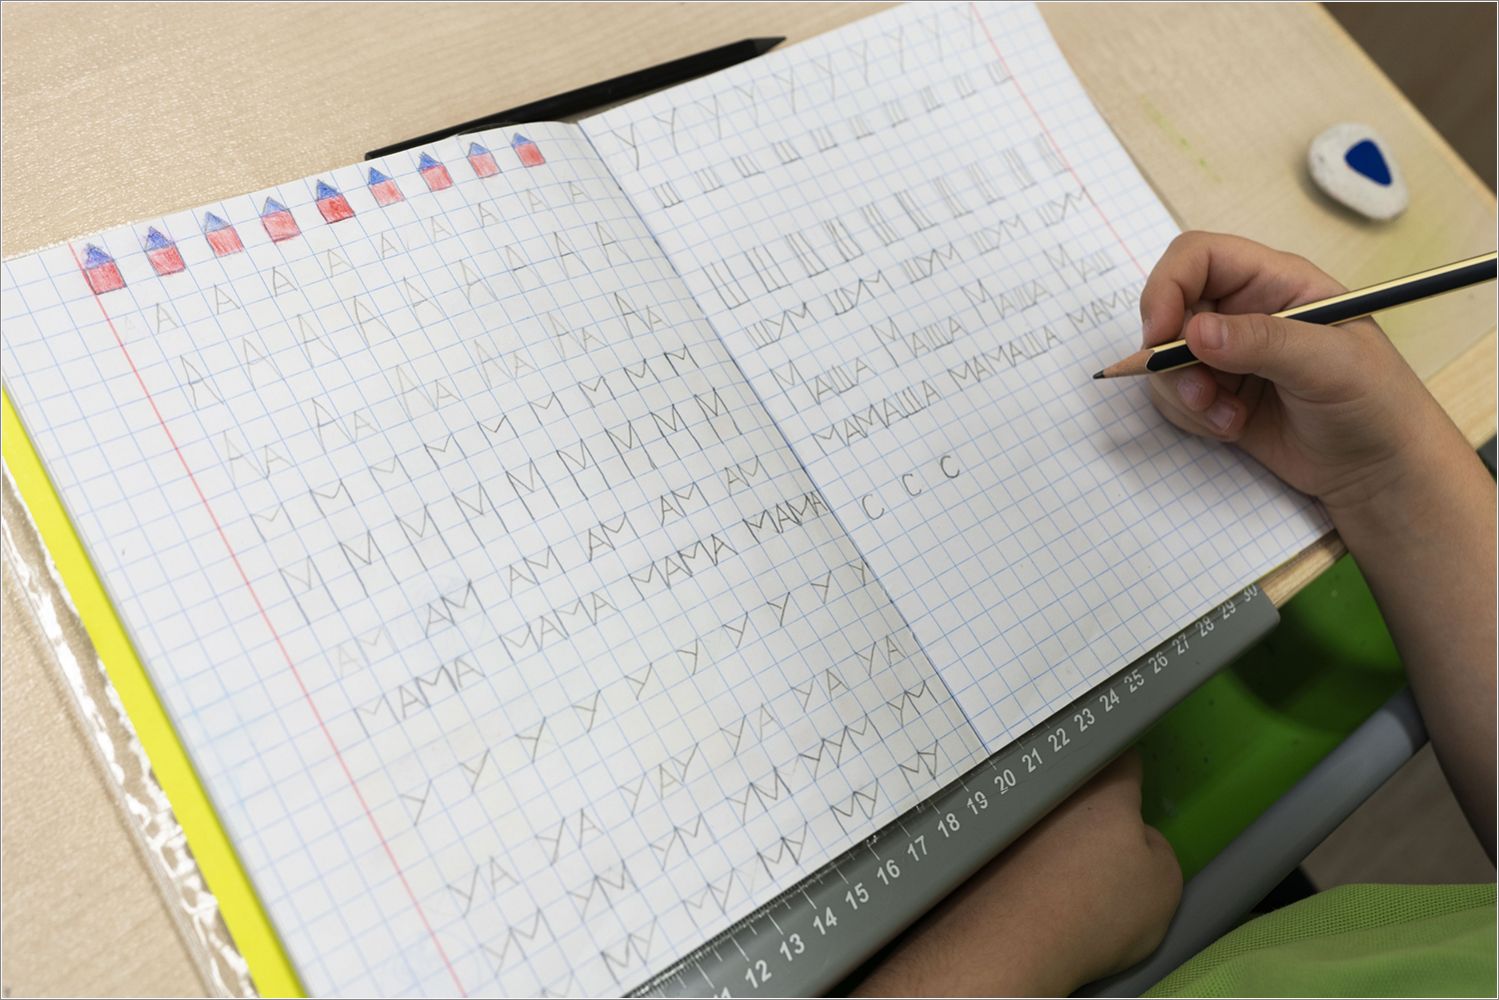 А А А А А А А А А А
А А А А А А А А А
Аа Аа Аа Аа Аа Аа
М М М М М М М М М
М М М М М М М М М
АМ АМ АМ АМ АМ АМ
МАМА МАМА МАМА МАМА
У У У У У У У У У У
УА УА УАУ УА УА УА
УМ УМ УМ УМ УМ УМ
МУ МУ МУ МУ МУ
У У У У У У У У У У
Ш Ш Ш Ш Ш Ш Ш Ш Ш Ш
Ш Ш Ш Ш Ш Ш Ш Ш Ш Ш
ШУМ ШУМ ШУМ ШУМ ШУМ
МАША МАША МАША МАШ
МАМАША МАМАША МАМА
С С С
11 12 13 14 15 16 17 18 19 20 21 22 23 24 25 26 27 28 29 30